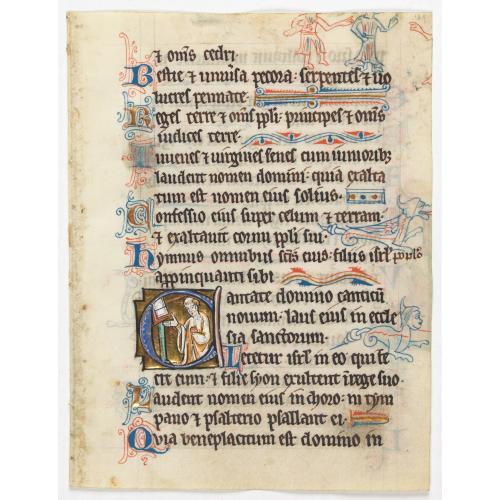 ⁊ om̅s cedri.
Bestie ⁊ uniuisa pecora: serpentes ⁊ uo
lucres pennate.
Reges terre ⁊ om̅s ppl̅i: principes ⁊ om̅s
iudices terre.
Iuuenes ⁊ uirgines senes cum iuniorib;
laudent nomen domini: quia exalta
tum est nomen eius solius.
Confessio eius super celum ⁊ terram:
⁊ exaltauit cornu ppl̅i sui.
Hymnus omnibus sc̅is eius: filiis isrl̅ populo
appinquanti sibi.
Cantate domino canticu̅
nouum: laus eius in eccle
sia sanctorum.
Letetur isrl̅ in eo qui fe
cit eum: ⁊ filie syon exultent i̅ rege suo.
Laudent nomen eius in choro: in tym
pano ⁊ psalterio psallant ei.
Quia beneplacitum est domino in